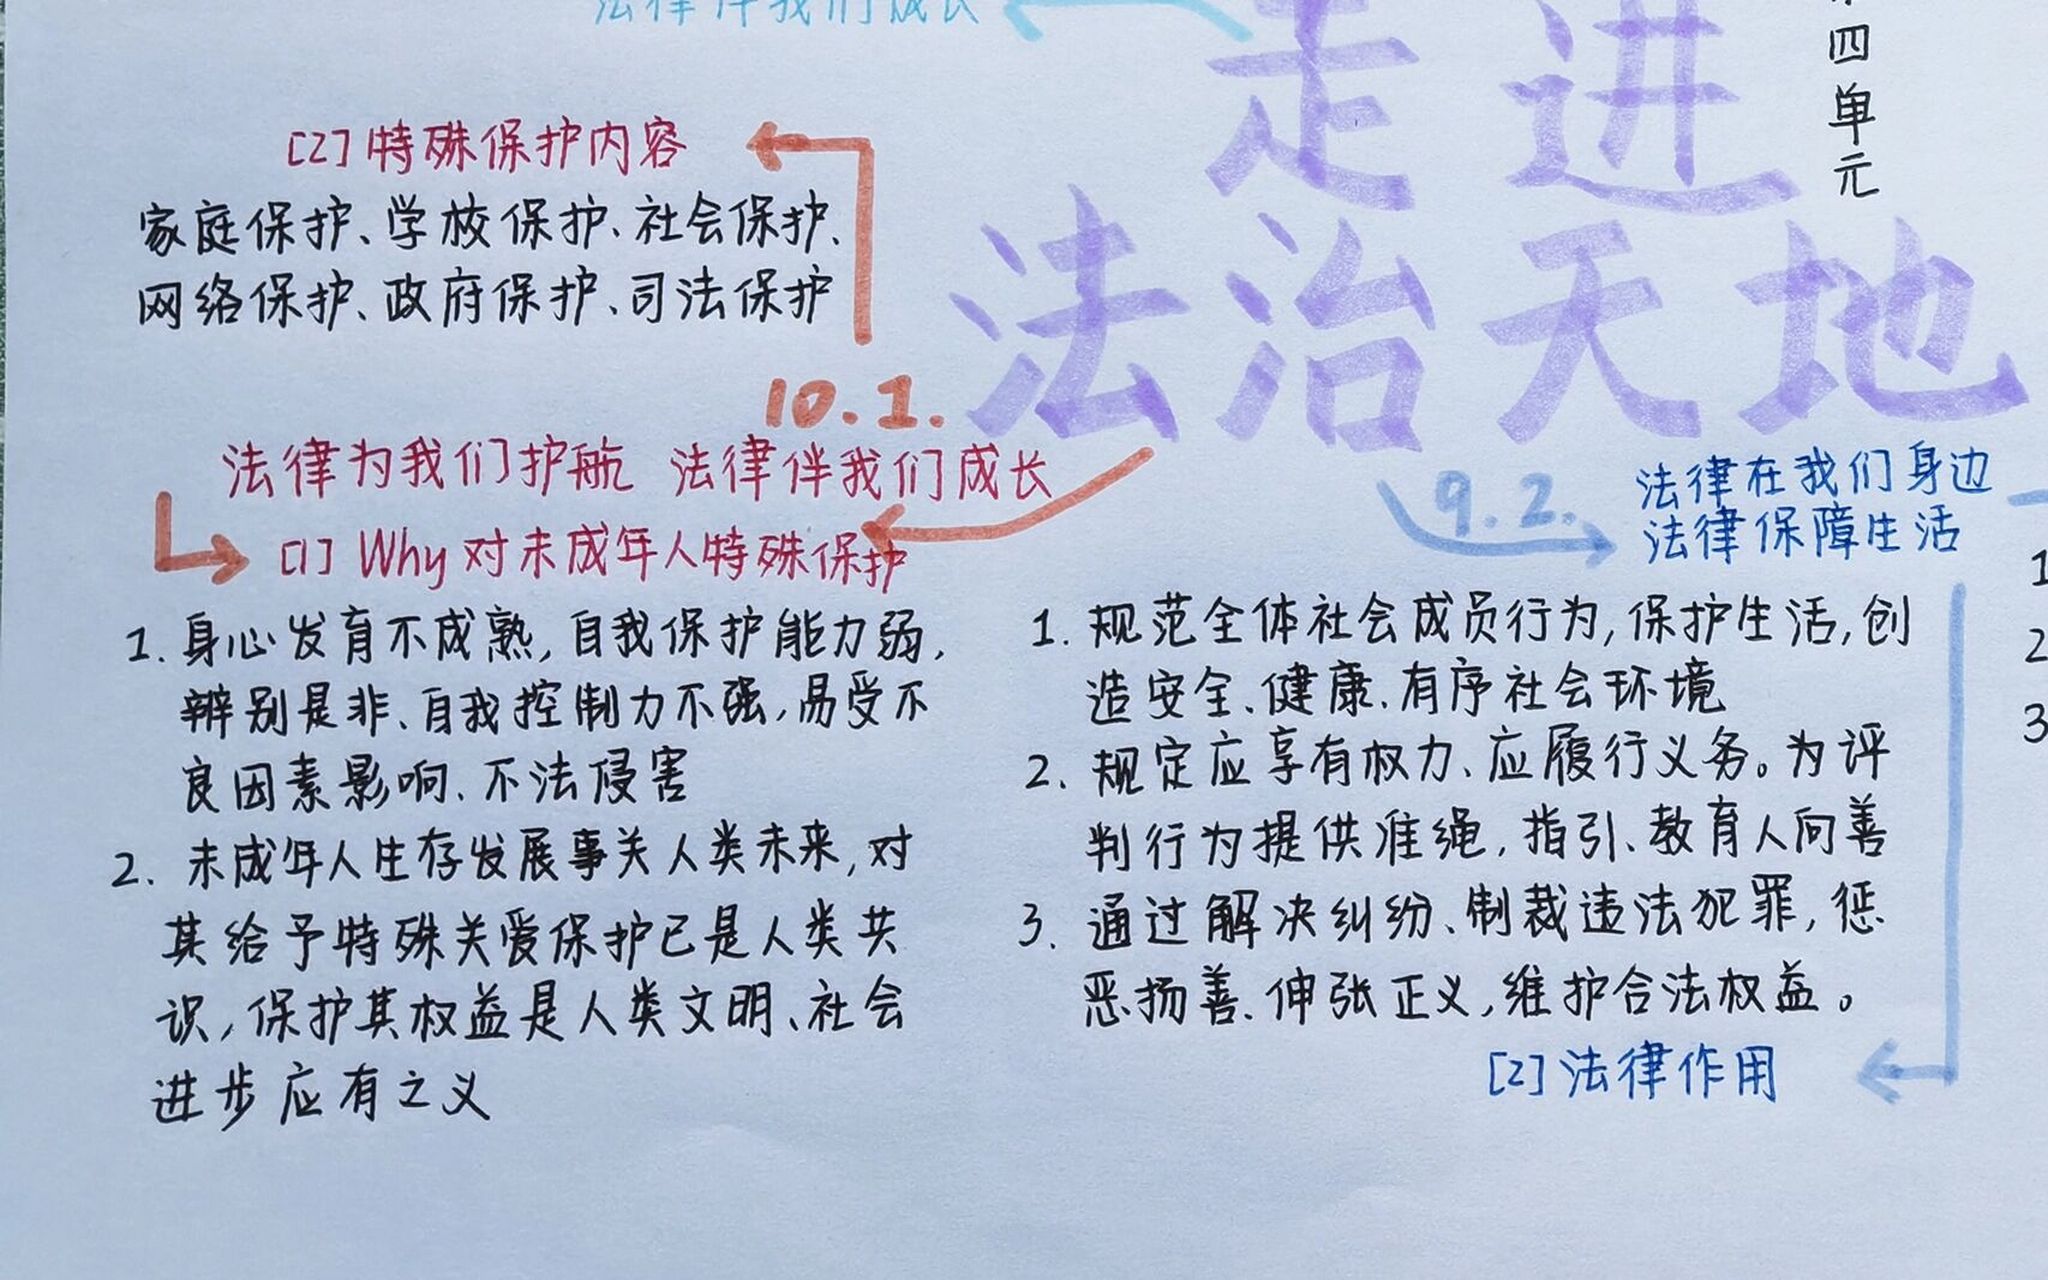 法律伴我们成长
走进
法治天地
四单元
[2] 特殊保护内容
家庭保护、学校保护、社会保护、
网络保护、政府保护、司法保护
10.1.
法律为我们护航 法律伴我们成长
[1] Why 对未成年人特殊保护
1. 身心发育不成熟,自我保护能力弱,
辨别是非、自我控制力不强,易受不
良因素影响、不法侵害
2. 未成年人生存发展事关人类未来,对
其给予特殊关爱保护已是人类共
识,保护其权益是人类文明、社会
进步应有之义
9.2.
法律在我们身边
法律保障生活
1. 规范全体社会成员行为,保护生活,创
造安全、健康、有序社会环境
2. 规定应享有权力、应履行义务。为评
判行为提供准绳,指引、教育人向善
3. 通过解决纠纷、制裁违法犯罪,惩
恶扬善、伸张正义,维护合法权益。
[2] 法律作用
1
2
3